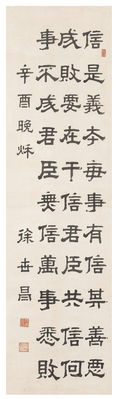 信是義本每事有信其善惡
成敗要在于信君臣共信何
事不成君臣無信萬事悉敗
辛酉晚秋
徐世昌